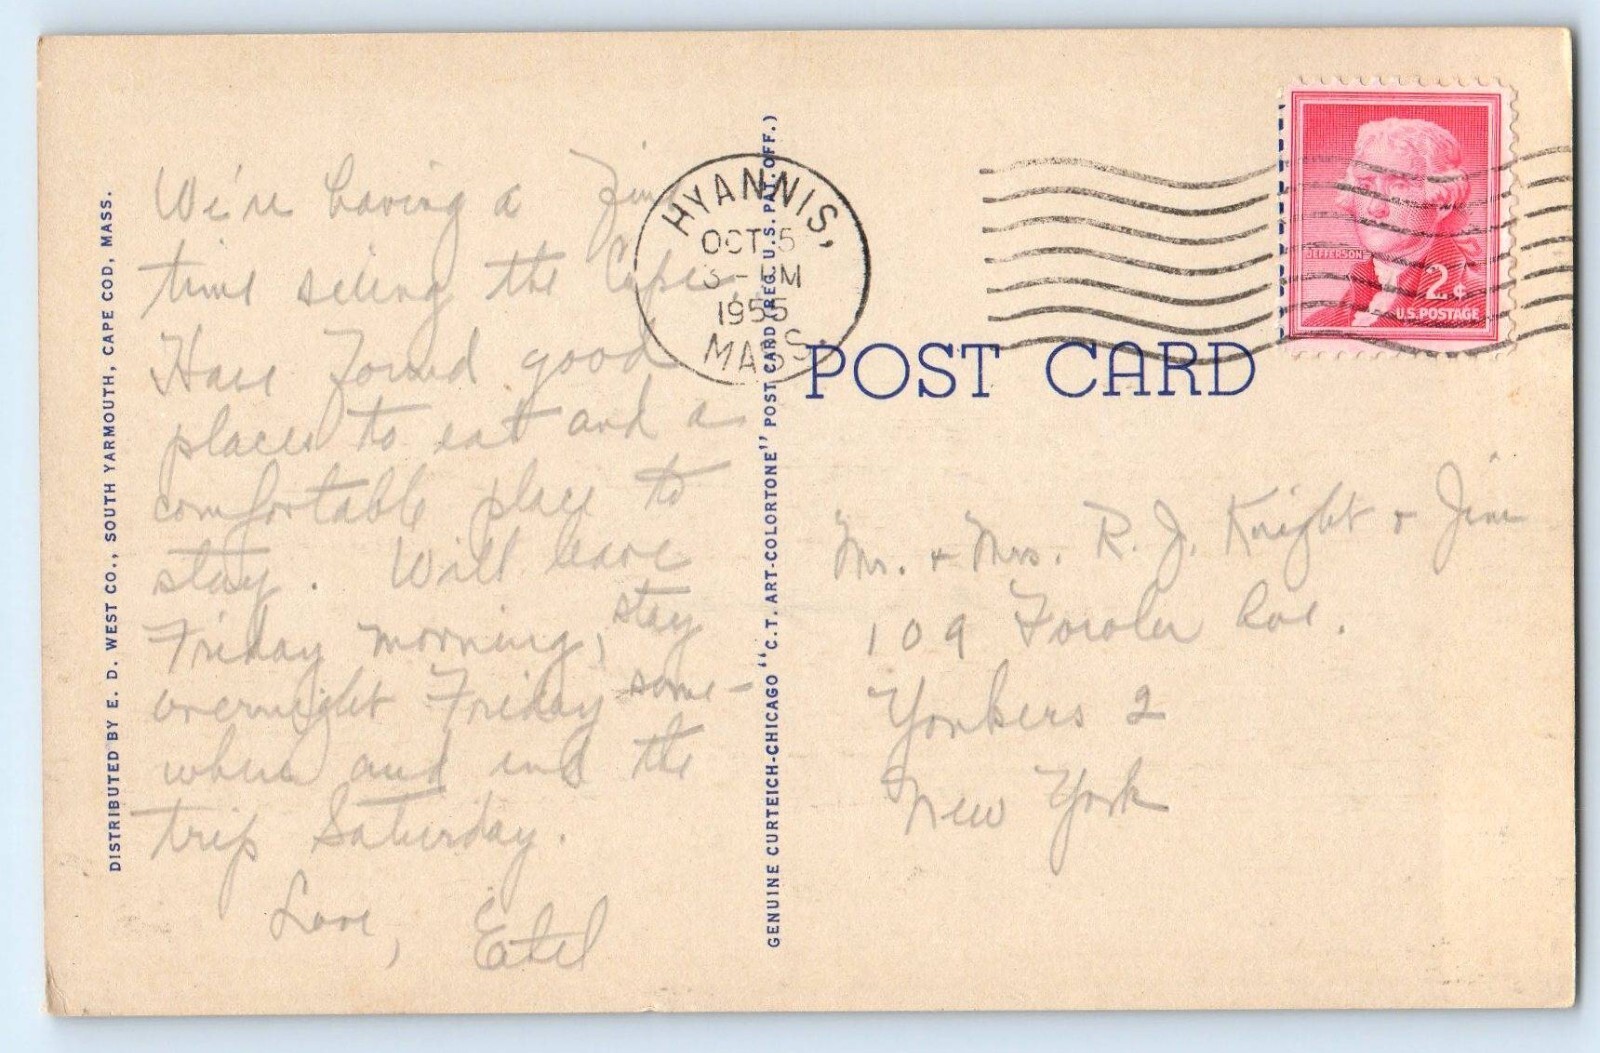 DISTRIBUTED BY E. D. WEST CO., SOUTH YARMOUTH, CAPE COD, MASS.
We're having a fine
time seeing the Cape.
Have found good
places to eat and a
comfortable place to
stay. Will leave
Friday morning, stay
overnight Friday some-
where and end the
trip Saturday.
Love, Ethel
GENUINE CURTEICH-CHICAGO "C.T. ART-COLORTONE" POST CARD (REG. U.S. PAT. OFF.)
HYANNIS,
OCT 5
3 - PM
1955
MASS.
JEFFERSON
2¢
U.S. POSTAGE
POST CARD
Mr. + Mrs. R. J. Knight + Jim
109 Fowler Ave.
Yonkers 2
New York